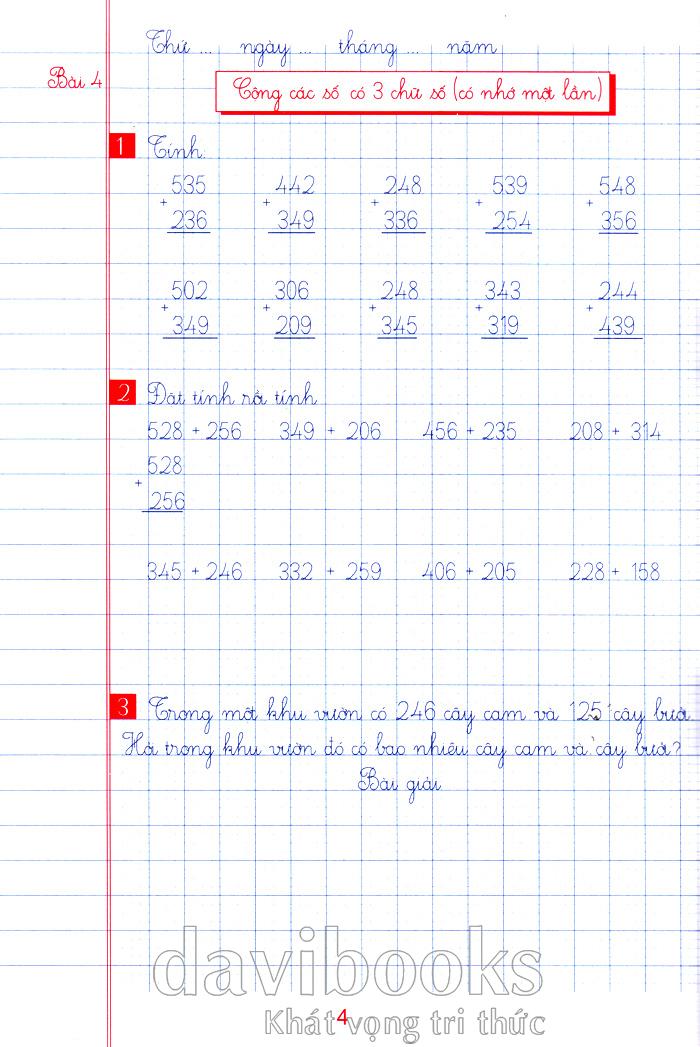 Thứ ... ngày ... tháng ... năm
Bài 4
Cộng các số có 3 chữ số (có nhớ một lần)
1 Tính:
535 442 248 539 548
+ + + + +
236 349 336 254 356
502 306 248 343 244
+ + + + +
349 209 345 319 439
2 Đặt tính rồi tính
528 + 256 349 + 206 456 + 235 208 + 314
528
+
256
345 + 246 332 + 259 406 + 205 228 + 158
3 Trong một khu vườn có 246 cây cam và 125 cây bưởi.
Hỏi trong khu vườn đó có bao nhiêu cây cam và cây bưởi?
Bài giải
davibooks
Khát vọng tri thức
4